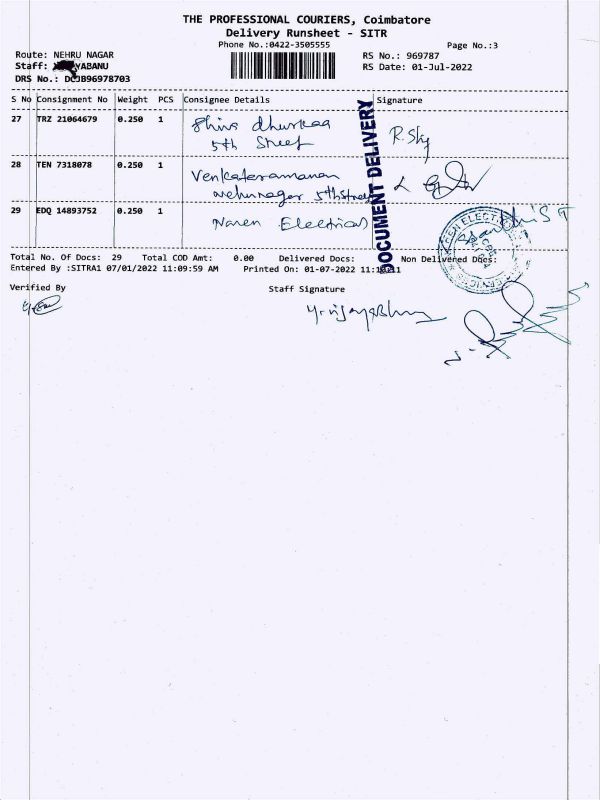 THE PROFESSIONAL COURIERS, Coimbatore
Delivery Runsheet - SITR
Phone No.:0422-3505555
Page No.:3
Route: NEHRU NAGAR
RS No.: 969787
Staff: YABANU
RS Date: 01-Jul-2022
DRS No.: DCJ896978703
S No Consignment No Weight PCS Consignee Details Signature
27 TRZ 21064679 0.250 1 Shiva dhurkaa
5th Street
R.Sky
28 TEN 7318078 0.250 1 Venkateramanan
Nehrunagar 5thstreet
29 EDQ 14893752 0.250 1 Naren Electrical
DOCUMENT DELIVERY
Total No. Of Docs: 29 Total COD Amt: 0.00 Delivered Docs: Non Delivered Docs:
Entered By :SITRA1 07/01/2022 11:09:59 AM Printed On: 01-07-2022
Verified By
Staff Signature